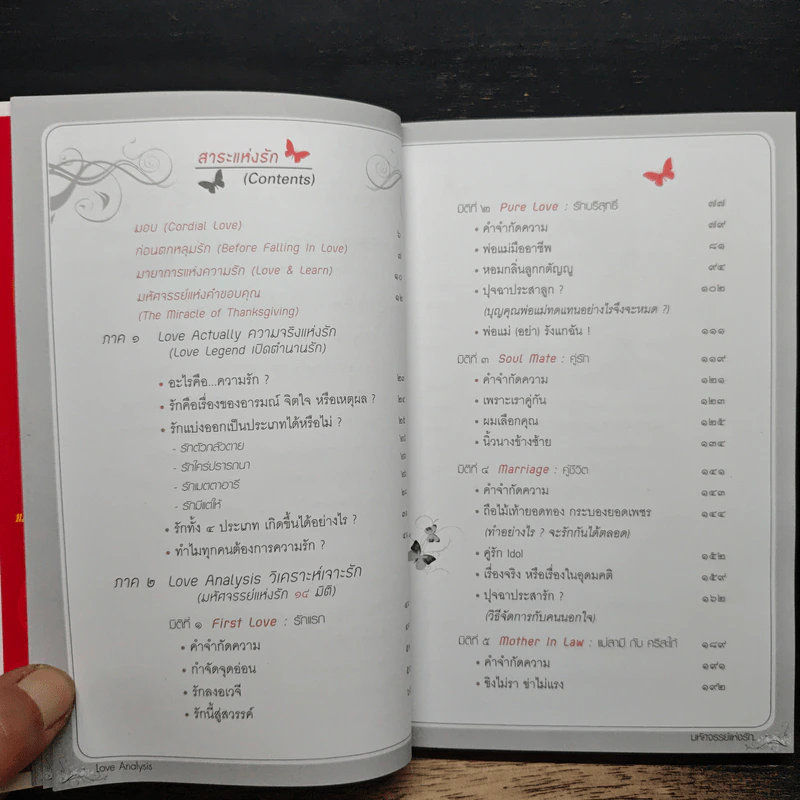 สาระแห่งรัก
(Contents)
มอบ (Cordial Love) ๖
ก่อนตกหลุมรัก (Before Falling In Love) ๘
มายาการแห่งความรัก (Love & Learn) ๑๐
มหัศจรรย์แห่งคำขอบคุณ ๑๒
(The Miracle of Thanksgiving)
ภาค ๑ Love Actually ความจริงแห่งรัก
(Love Legend เปิดตำนานรัก)
• อะไรคือ...ความรัก ?
• รักคือเรื่องของอารมณ์ จิตใจ หรือเหตุผล ?
• รักแบ่งออกเป็นประเภทได้หรือไม่ ?
- รักตัวกลัวตาย
- รักใคร่ปรารถนา
- รักเมตตาอารี
- รักมีแต่ให้
• รักทั้ง ๔ ประเภท เกิดขึ้นได้อย่างไร ?
• ทำไมทุกคนต้องการความรัก ?
ภาค ๒ Love Analysis วิเคราะห์เจาะรัก
(มหัศจรรย์แห่งรัก ๑๔ มิติ)
มิติที่ ๑ First Love : รักแรก
• คำจำกัดความ
• กำจัดจุดอ่อน
• รักลงอเวจี
• รักนี้สู่สวรรค์
Love Analysis
มิติที่ ๒ Pure Love : รักบริสุทธิ์ ๗๗
• คำจำกัดความ ๗๙
• พ่อแม่มืออาชีพ ๘๑
• หอมกลิ่นลูกกตัญญู ๙๔
• ปุจฉาประสาลูก ? ๑๐๒
(บุญคุณพ่อแม่ทดแทนอย่างไรจึงจะหมด ?)
• พ่อแม่ (อย่า) รังแกฉัน ! ๑๑๑
มิติที่ ๓ Soul Mate : คู่รัก ๑๑๙
• คำจำกัดความ ๑๒๑
• เพราะเราคู่กัน ๑๒๓
• ผมเลือกคุณ ๑๒๕
• นิ้วนางข้างซ้าย ๑๓๔
มิติที่ ๔ Marriage : คู่ชีวิต ๑๔๑
• คำจำกัดความ ๑๔๓
• ถือไม้เท้ายอดทอง กระบองยอดเพชร ๑๔๔
(ทำอย่างไร ? จะรักกันได้ตลอด)
• คู่รัก Idol ๑๕๒
• เรื่องจริง หรือเรื่องในอุดมคติ ๑๕๙
• ปุจฉาประสารัก ? ๑๖๒
(วิธีจัดการกับคนนอกใจ)
มิติที่ ๕ Mother In Law : แม่สามี กับ ศรีสะใภ้ ๑๘๙
• คำจำกัดความ ๑๙๑
• ขิงไม่รา ข่าไม่แรง ๑๙๒
มหัศจรรย์แห่งรัก